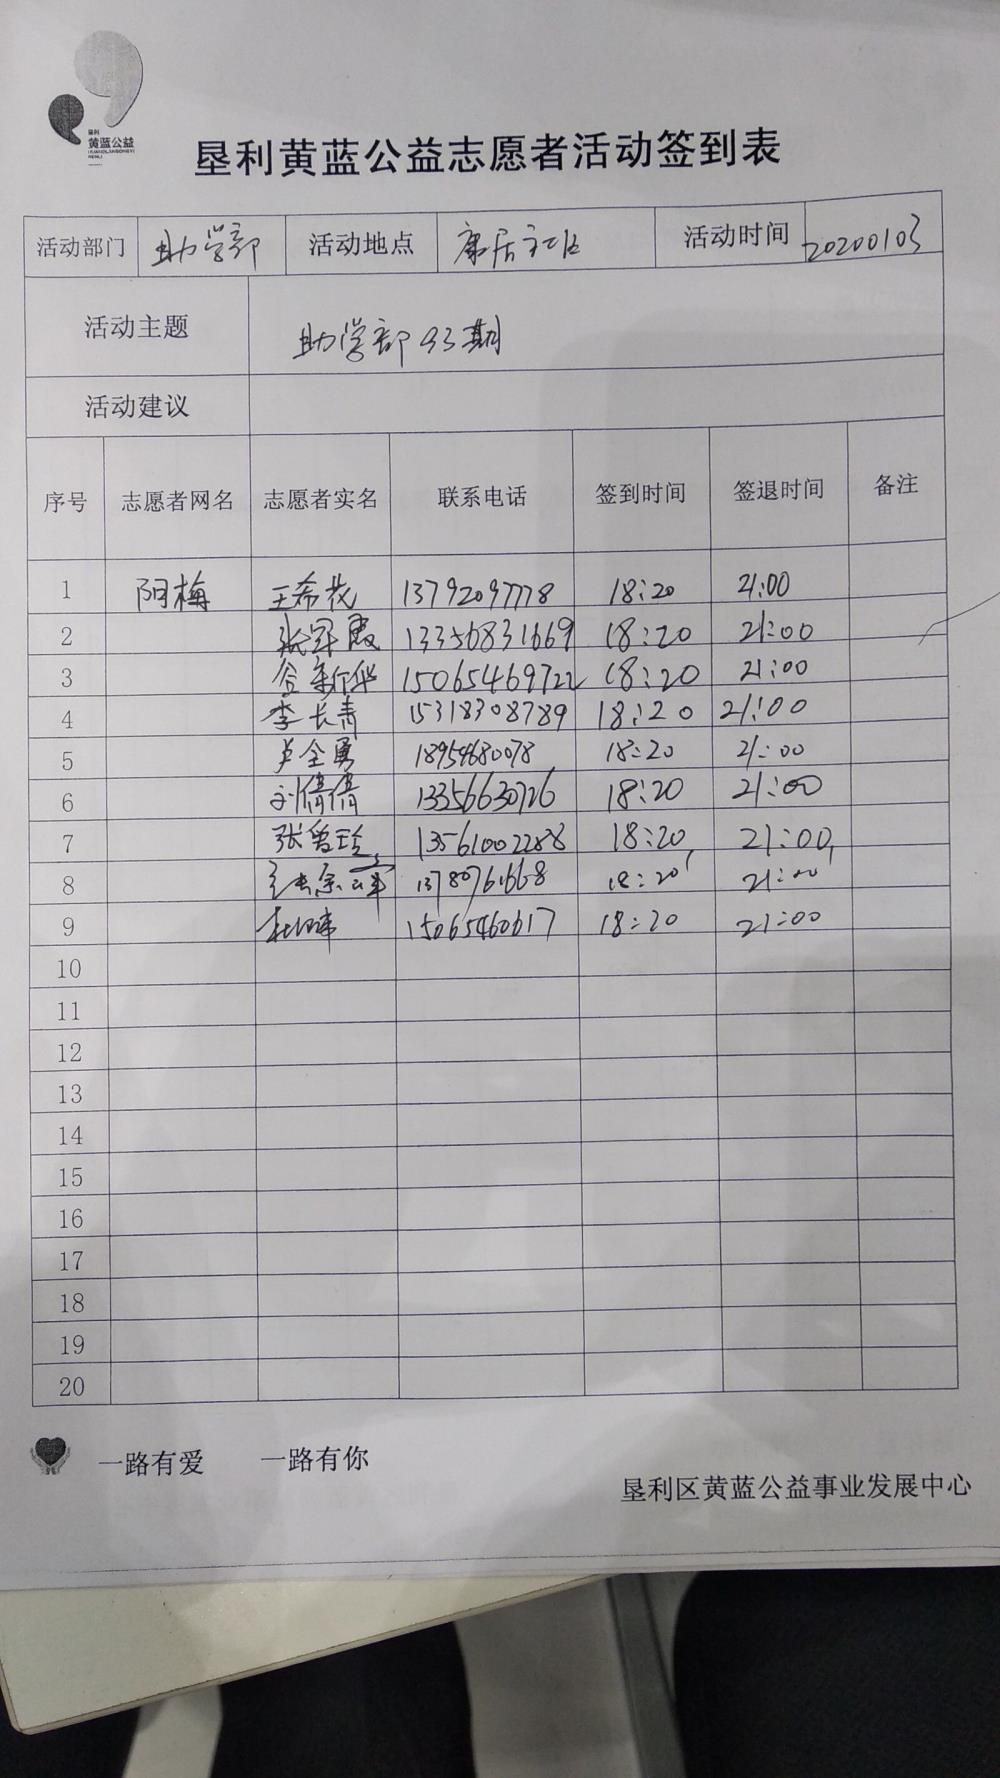 垦利
黄蓝公益
垦利黄蓝公益志愿者活动签到表
活动部门 助学部 活动地点 康居社区 活动时间 20200103
活动主题 助学部93期
活动建议
序号 志愿者网名 志愿者实名 联系电话 签到时间 签退时间 备注
1 阳梅 王希花 13792097778 18:20 21:00
2 张翠霞 13356831669 18:20 21:00
3 新华 15065469722 18:20 21:00
4 李长青 15318308789 18:20 21:00
5 卢全勇 18954680078 18:20 21:00
6 刘倩倩 13356630726 18:20 21:00
7 张曾玲 13561002288 18:20 21:00
8 13780761668 18:20 21:00
9 15065460617 18:20 21:00
10
11
12
13
14
15
16
17
18
19
20
一路有爱 一路有你
垦利区黄蓝公益事业发展中心